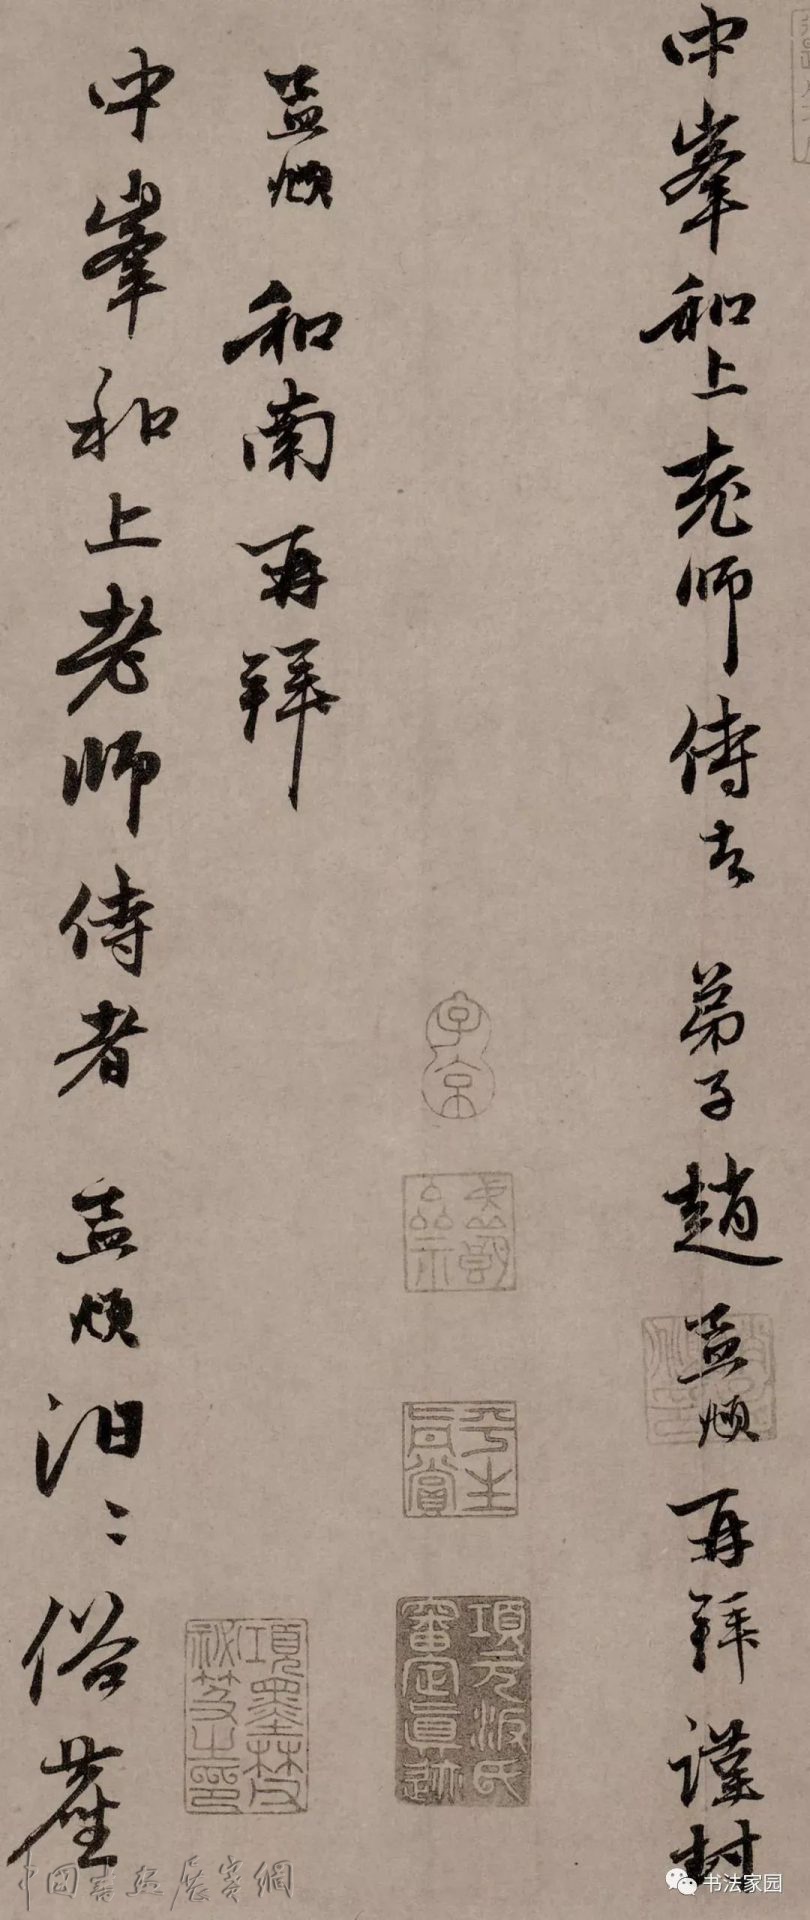 中峯和上老师侍者 弟子趙孟頫再拜謹封
孟頫和南再拜
中峯和上老师侍者 孟頫汩〻俗塵
子京
平生真賞
項元汴氏審定真跡
項墨林父祕笈之印
中國書畫展賽網
书法家园